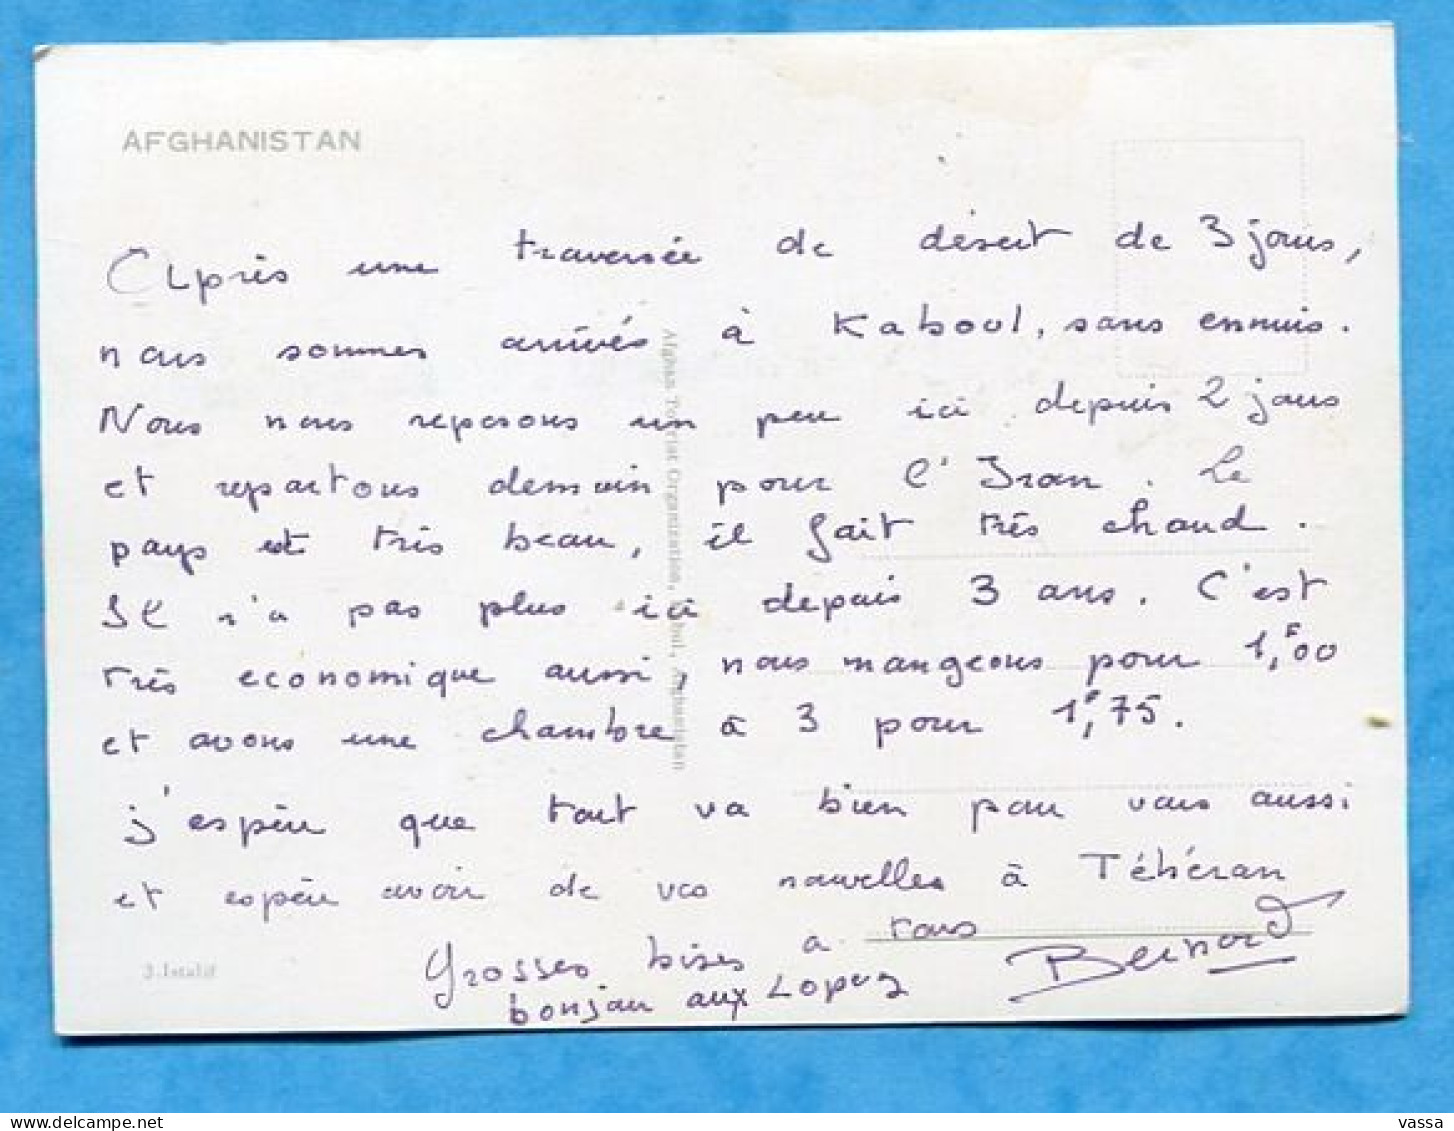 AFGHANISTAN
Après une traversée de désert de 3 jours,
nous sommes arrivés à Kaboul, sans ennuis.
Nous nous reposons un peu ici depuis 2 jours
et repartons demain pour l'Iran. Le
pays est très beau, il fait très chaud.
Il n'a pas plus ici depuis 3 ans. C'est
très economique aussi, nous mangeons pour 1,F00
et avons une chambre à 3 pour 1,F75.
j'espère que tout va bien pour vous aussi
et espère avoir de vos nouvelles à Téhéran
Grosses bises a tous
bonjour aux Lopez
Bernard
Afghan Tourist Organization, Kabul, Afghanistan
3.Istalif
vassa